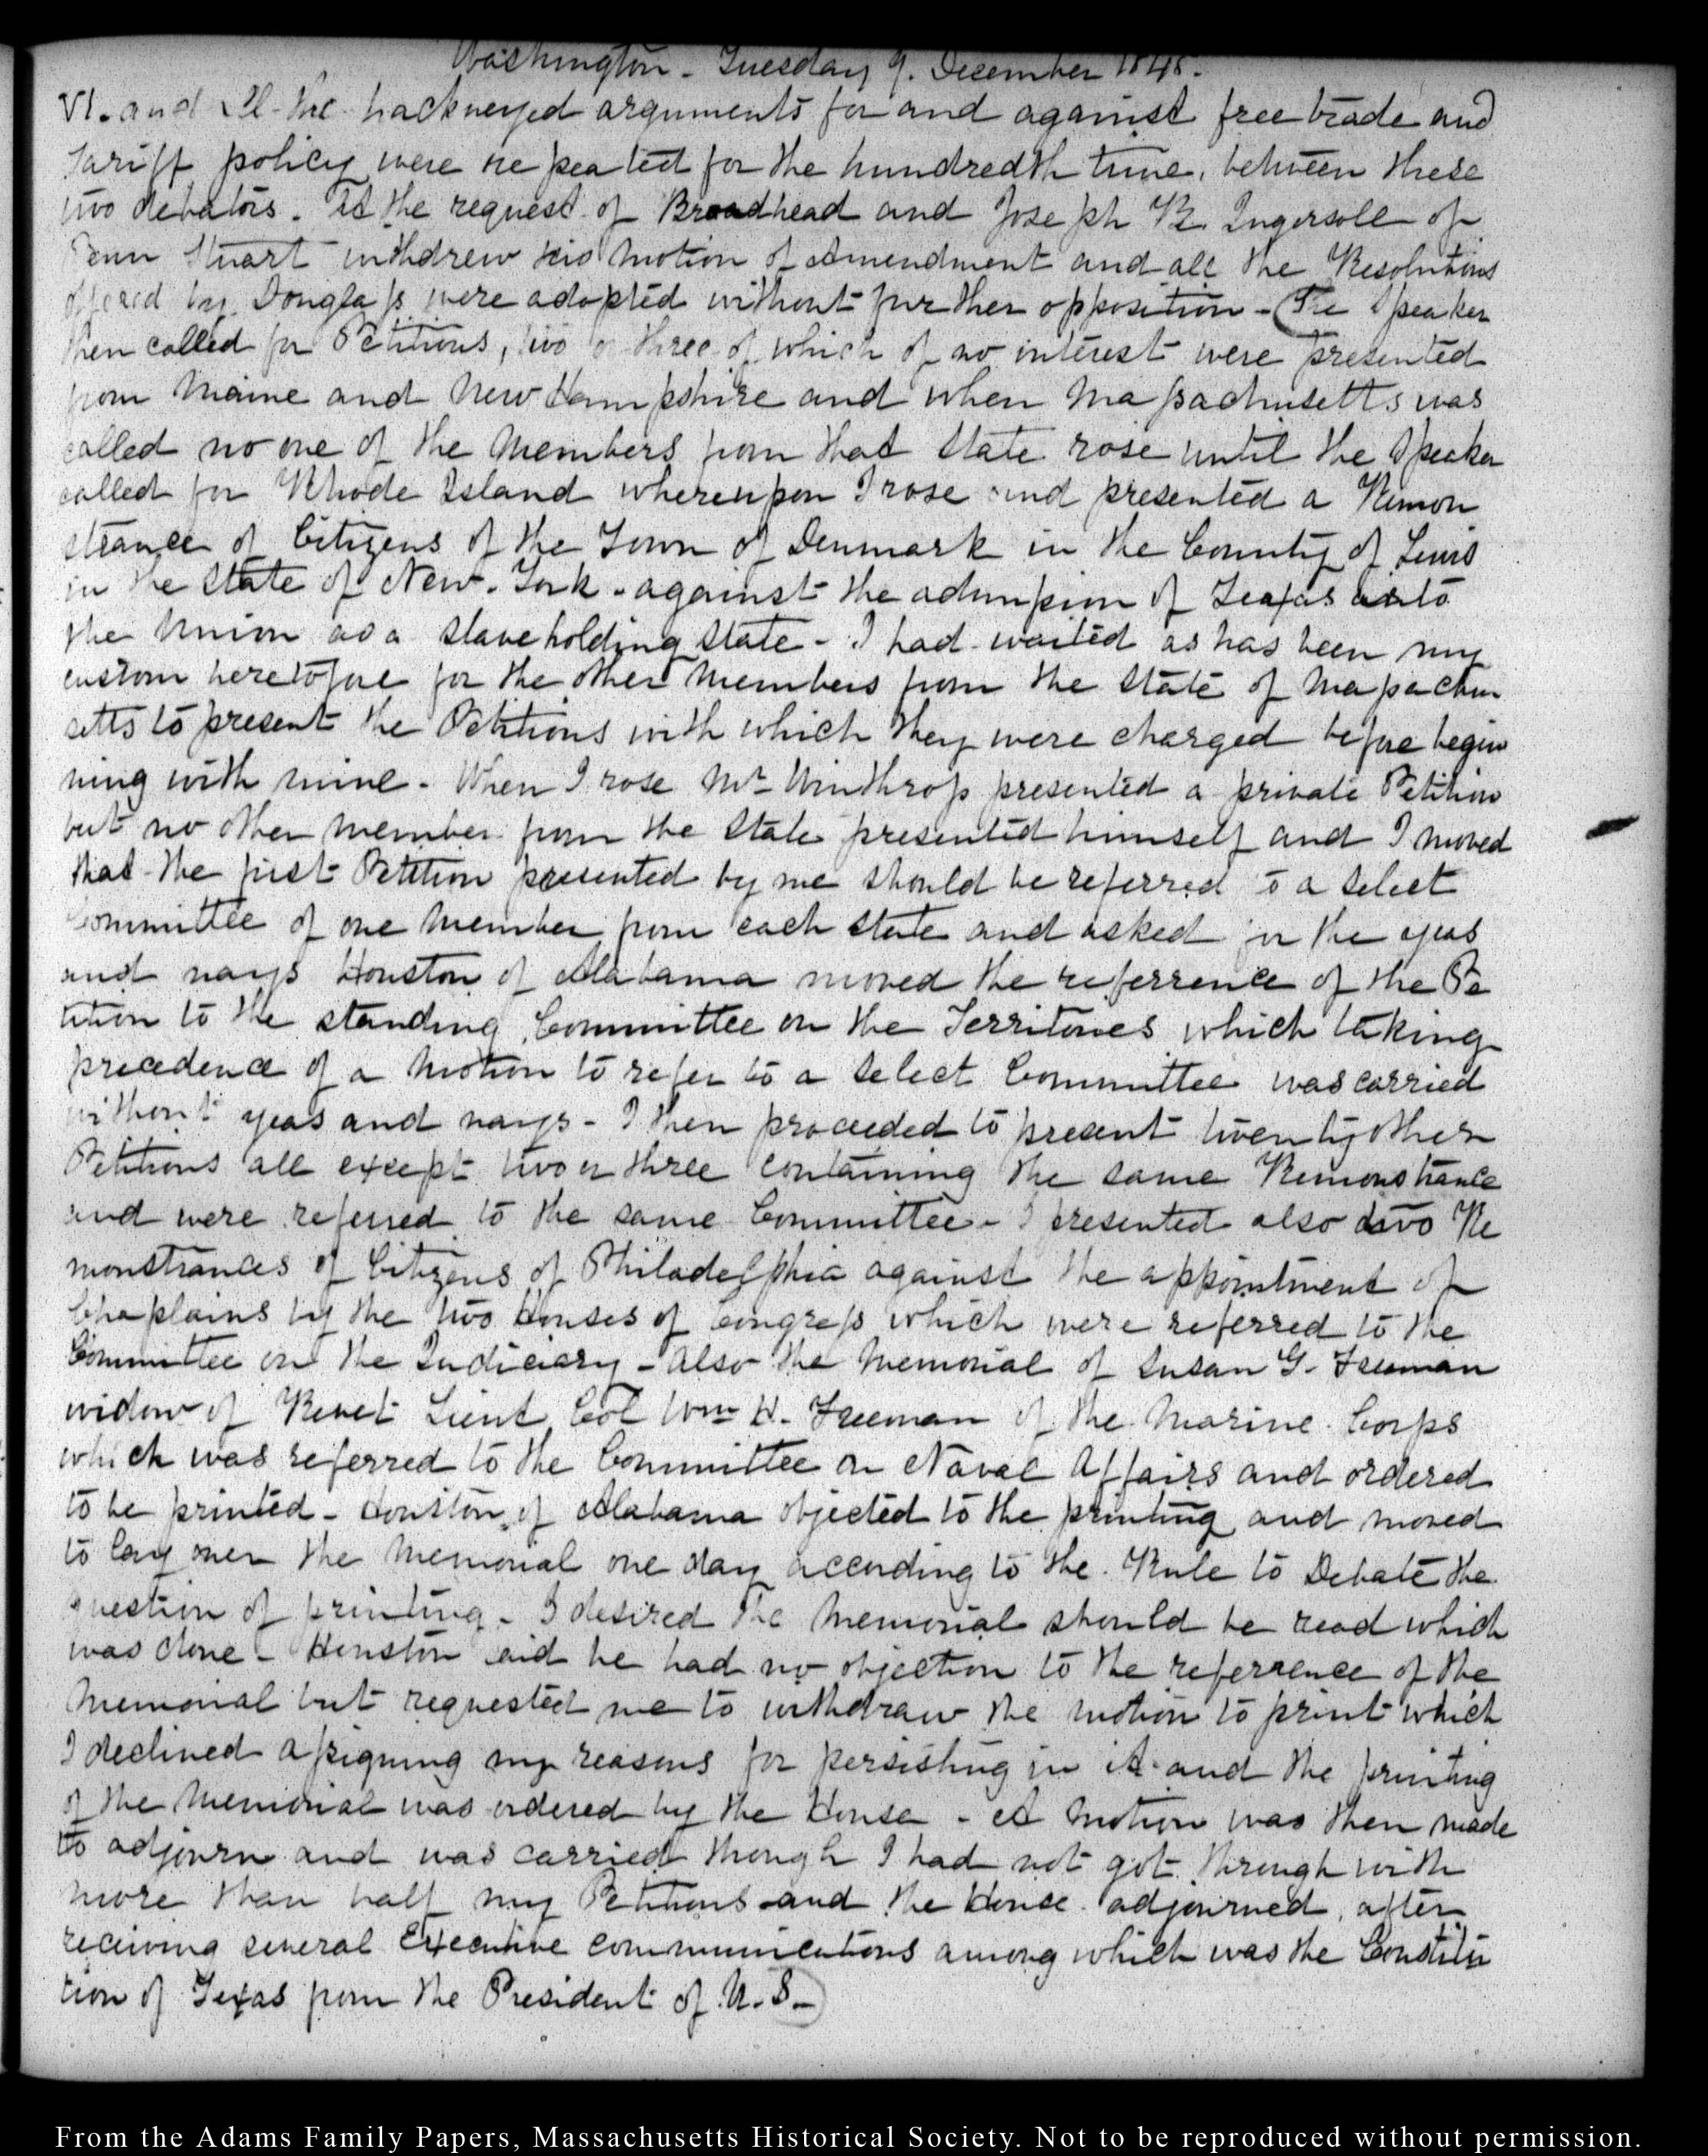 Washington - Tuesday 9. December 1845.
VI. and the hackneyed arguments for and against free trade and
tariff policy were repeated for the hundredth time, between these
two debators. At the request of Broadhead and Joseph R. Ingersoll of
Penn Stuart withdrew his motion of Amendment and all the Resolutions
offered by Douglass were adopted without further opposition - (The Speaker
then called for Petitions, two or three of which of no interest were presented
from Maine and New Hampshire and when Massachusetts was
called no one of the Members from that State rose until the Speaker
called for Rhode Island whereupon I rose and presented a Remon
strance of Citizens of the Town of Denmark in the County of Lewis
in the State of New-York - against the admission of Texas into
the Union as a slaveholding State - I had waited as has been my
custom heretofore for the other Members from the State of Massachu
setts to present the Petitions with which they were charged before begin
ning with mine - When I rose Mr Winthrop presented a private Petition
but no other member from the State presented himself and I moved
that the first Petition presented by me should be referred to a select
Committee of one Member from each State and asked for the yeas
and nays Houston of Alabama moved the referrence of the Pe
tition to the standing Committee on the Territories which taking
precedence of a motion to refer to a select Committee was carried
without yeas and nays - I then proceeded to present twenty other
Petitions all except two or three containing the same Remonstrance
and were referred to the same Committee - I presented also two Re
monstrances of Citizens of Philadelphia against the appointment of
Chaplains by the two Houses of Congress which were referred to the
Committee on the Judiciary - Also the Memorial of Susan G. Freeman
widow of Brevet Lieut Col Wm H. Freeman of the Marine Corps
which was referred to the Committee on Naval Affairs and ordered
to be printed - Houston, of Alabama objected to the printing and moved
to lay over the Memorial one day according to the Rule to Debate the
question of printing - I desired the Memorial should be read which
was done - Houston said he had no objection to the referrence of the
Memorial but requested me to withdraw the motion to print which
I declined assigning my reasons for persisting in it and the printing
of the Memorial was ordered by the House - A motion was then made
to adjourn and was carried though I had not got through with
more than half my Petitions and the House adjourned, after
receiving several Executive communications among which was the Constitu
tion of Texas from the President of U.S.-)
From the Adams Family Papers, Massachusetts Historical Society. Not to be reproduced without permission.